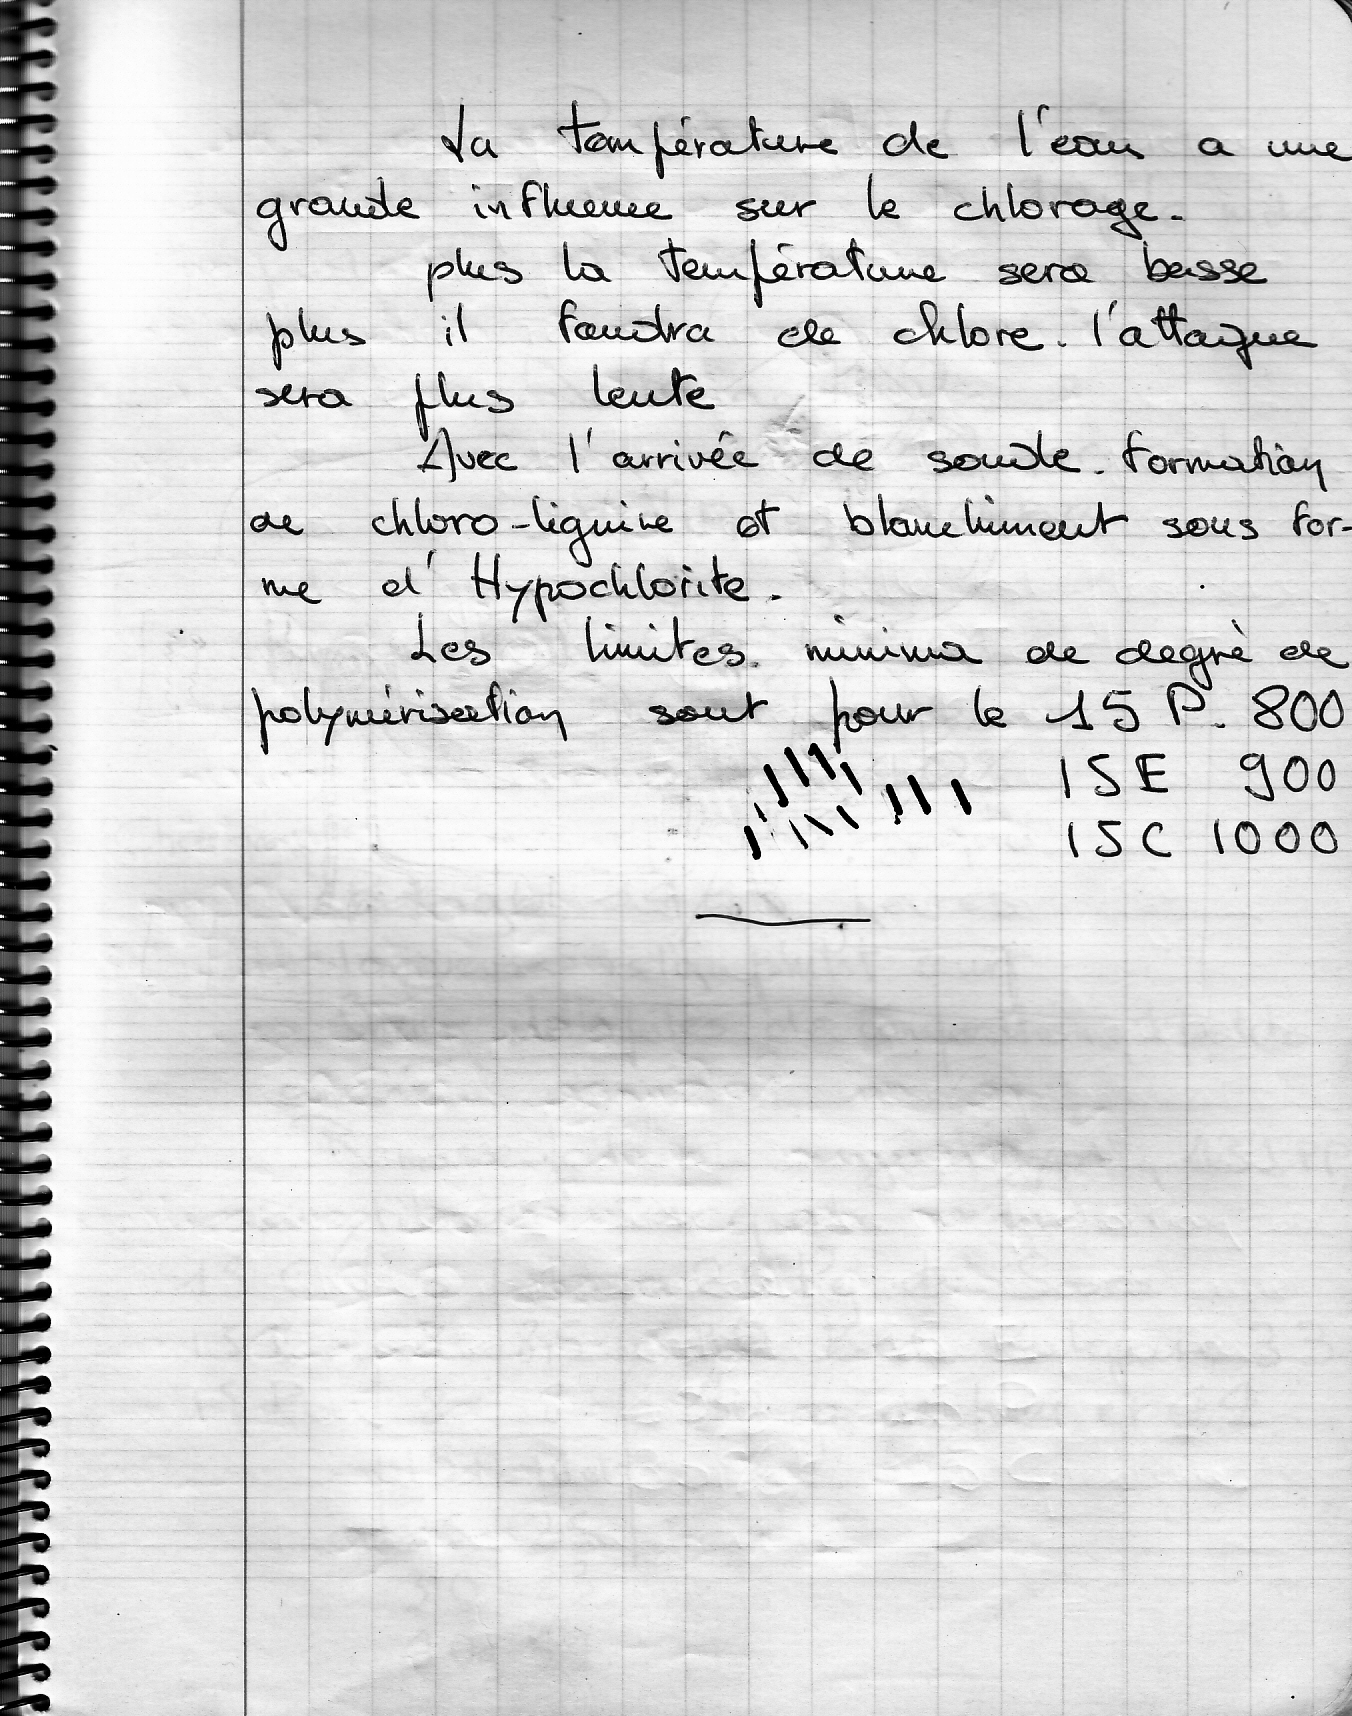 La température de l'eau a une
grande influence sur le chlorage.
plus la température sera basse
plus il faudra de chlore. l'attaque
sera plus lente
Avec l'arrivée de soude. formation
de chloro-lignine et blanchiment sous for-
me d'Hypochlorite.
Les limites. minima de degrè de
polymérisation sont pour le 15 P. 800
15 E 900
15 C 1000